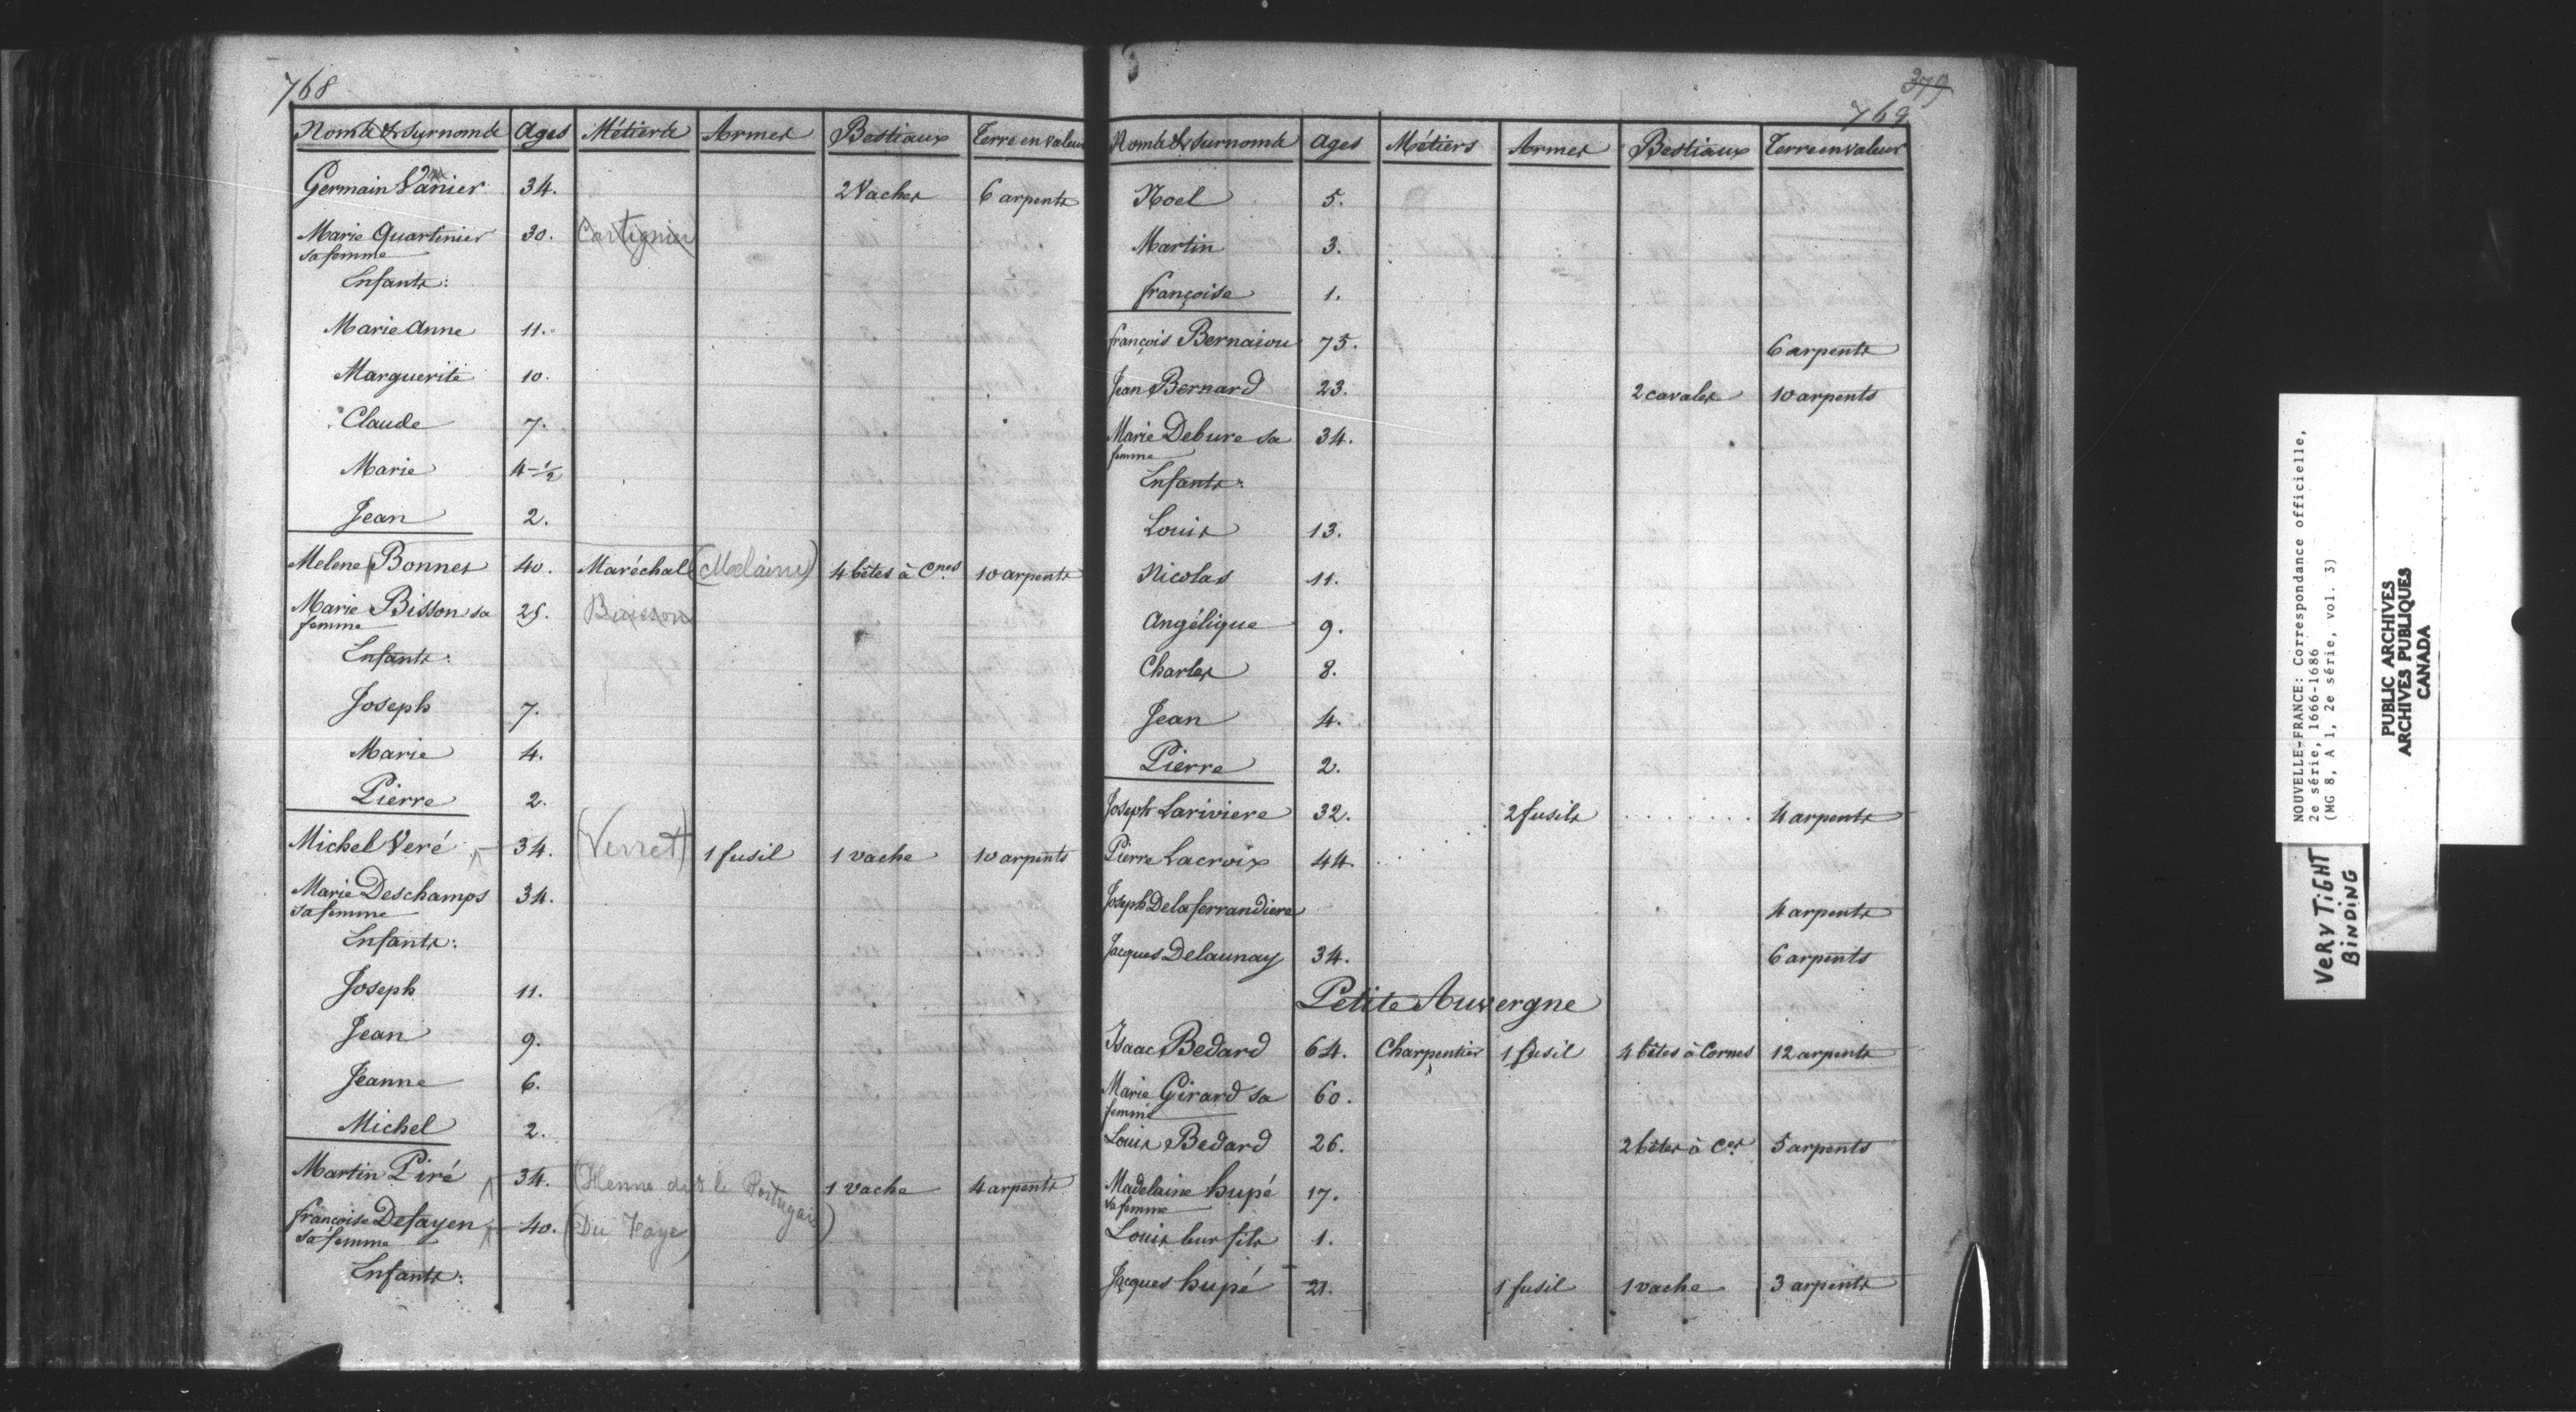 768
Noms & surnoms Ages Métiers Armes Bestiaux Terre en valeur
Germain Vanier 34. 2 Vaches 6 arpents
Marie Quartinier 30. Cartignier
sa femme
Enfants:
Marie Anne 11.
Marguerite 10.
Claude 7.
Marie 4-1/2
Jean 2.
Melene Bonnes 40. Maréchal (Melaine) 4 bêtes à Cnes 10 arpents
Marie Bisson sa 25. Buisson
femme
Enfants:
Joseph 7.
Marie 4.
Pierre 2.
Michel Veré 34. (Verret) 1 fusil 1 vache 10 arpents
Marie Deschamps 34.
sa femme
Enfants:
Joseph 11.
Jean 9.
Jeanne 6.
Michel 2.
Martin Piré 34. (Henne dit le Portugais) 1 vache 4 arpents
françoise Defayen 40. (Du Faye)
sa femme
Enfants:
379
769
Noms & surnoms Ages Métiers Armes Bestiaux Terre en valeur
Noel 5.
Martin 3.
françoise 1.
françois Bernaiou 75. 6 arpents
Jean Bernard 23. 2 cavales 10 arpents
Marie Debure sa 34.
femme
Enfants:
Louis 13.
Nicolas 11.
Angélique 9.
Charles 8.
Jean 4.
Pierre 2.
Joseph Lariviere 32. 2 fusils . . . . . . . . 4 arpents
Pierre Lacroix 44.
Joseph Delaferrandiere 4 arpents
Jacques Delaunay 34. 6 arpents
Petite Auvergne
Isaac Bedard 64. Charpentier 1 fusil 4 bêtes à Cornes 12 arpents
Marie Girard sa 60.
femme
Louis Bedard 26. 2 bêtes à Ces 5 arpents
Madelaine hupé 17.
sa femme
Louis leur fils 1.
Jacques hupé 21. 1 fusil 1 vache 3 arpents
NOUVELLE-FRANCE: Correspondance officielle,
2e série, 1666-1686
(MG 8, A 1, 2e série, vol. 3)
PUBLIC ARCHIVES
ARCHIVES PUBLIQUES
CANADA
VERY TIGHT
BINDING